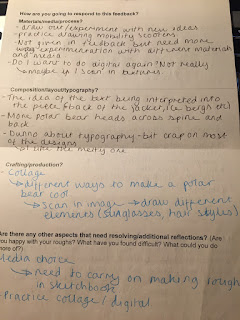 How are you going to respond to this feedback?
Materials/media/process?
- draw out/experiment with new ideas
- practice drawing modulying scooters
- Not given in feedback but need more
experimentation with different materials
and media
- Do I want to do digital again? Not really
→ maybe if I scan in textures
Composition/layout/typography?
- The idea of the text being interpreted into
the piece/back of the jacket,
- More polar bear heads across spine and
back
- Dunno about typography - bit crap on most
of the designs
I like the melty one
Crafting/production?
- Collage
→ different ways to make a polar
bear cool
→ Scan in image → draw different
elements (sunglasses, hair styles)
Are there any other aspects that need resolving/additional reflections? (Are
you happy with your roughs? What have you found difficult? What could you do
more of?)
Media choice
→ need to carry on making roughs
in sketchbook
- Practice collage/digital